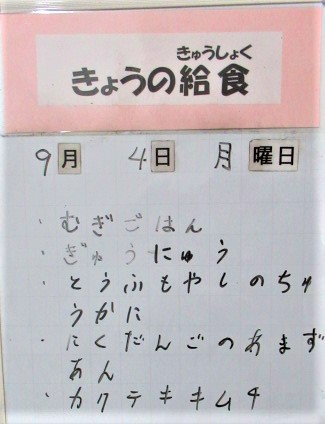 きゅうしょく
きょうの給食
9月 4日 月曜日
・むぎごはん
・ぎゅうにゅう
・とうふもやしのちゅ
うかに
・にくだんごのあまず
あん
・カクテキキムチ